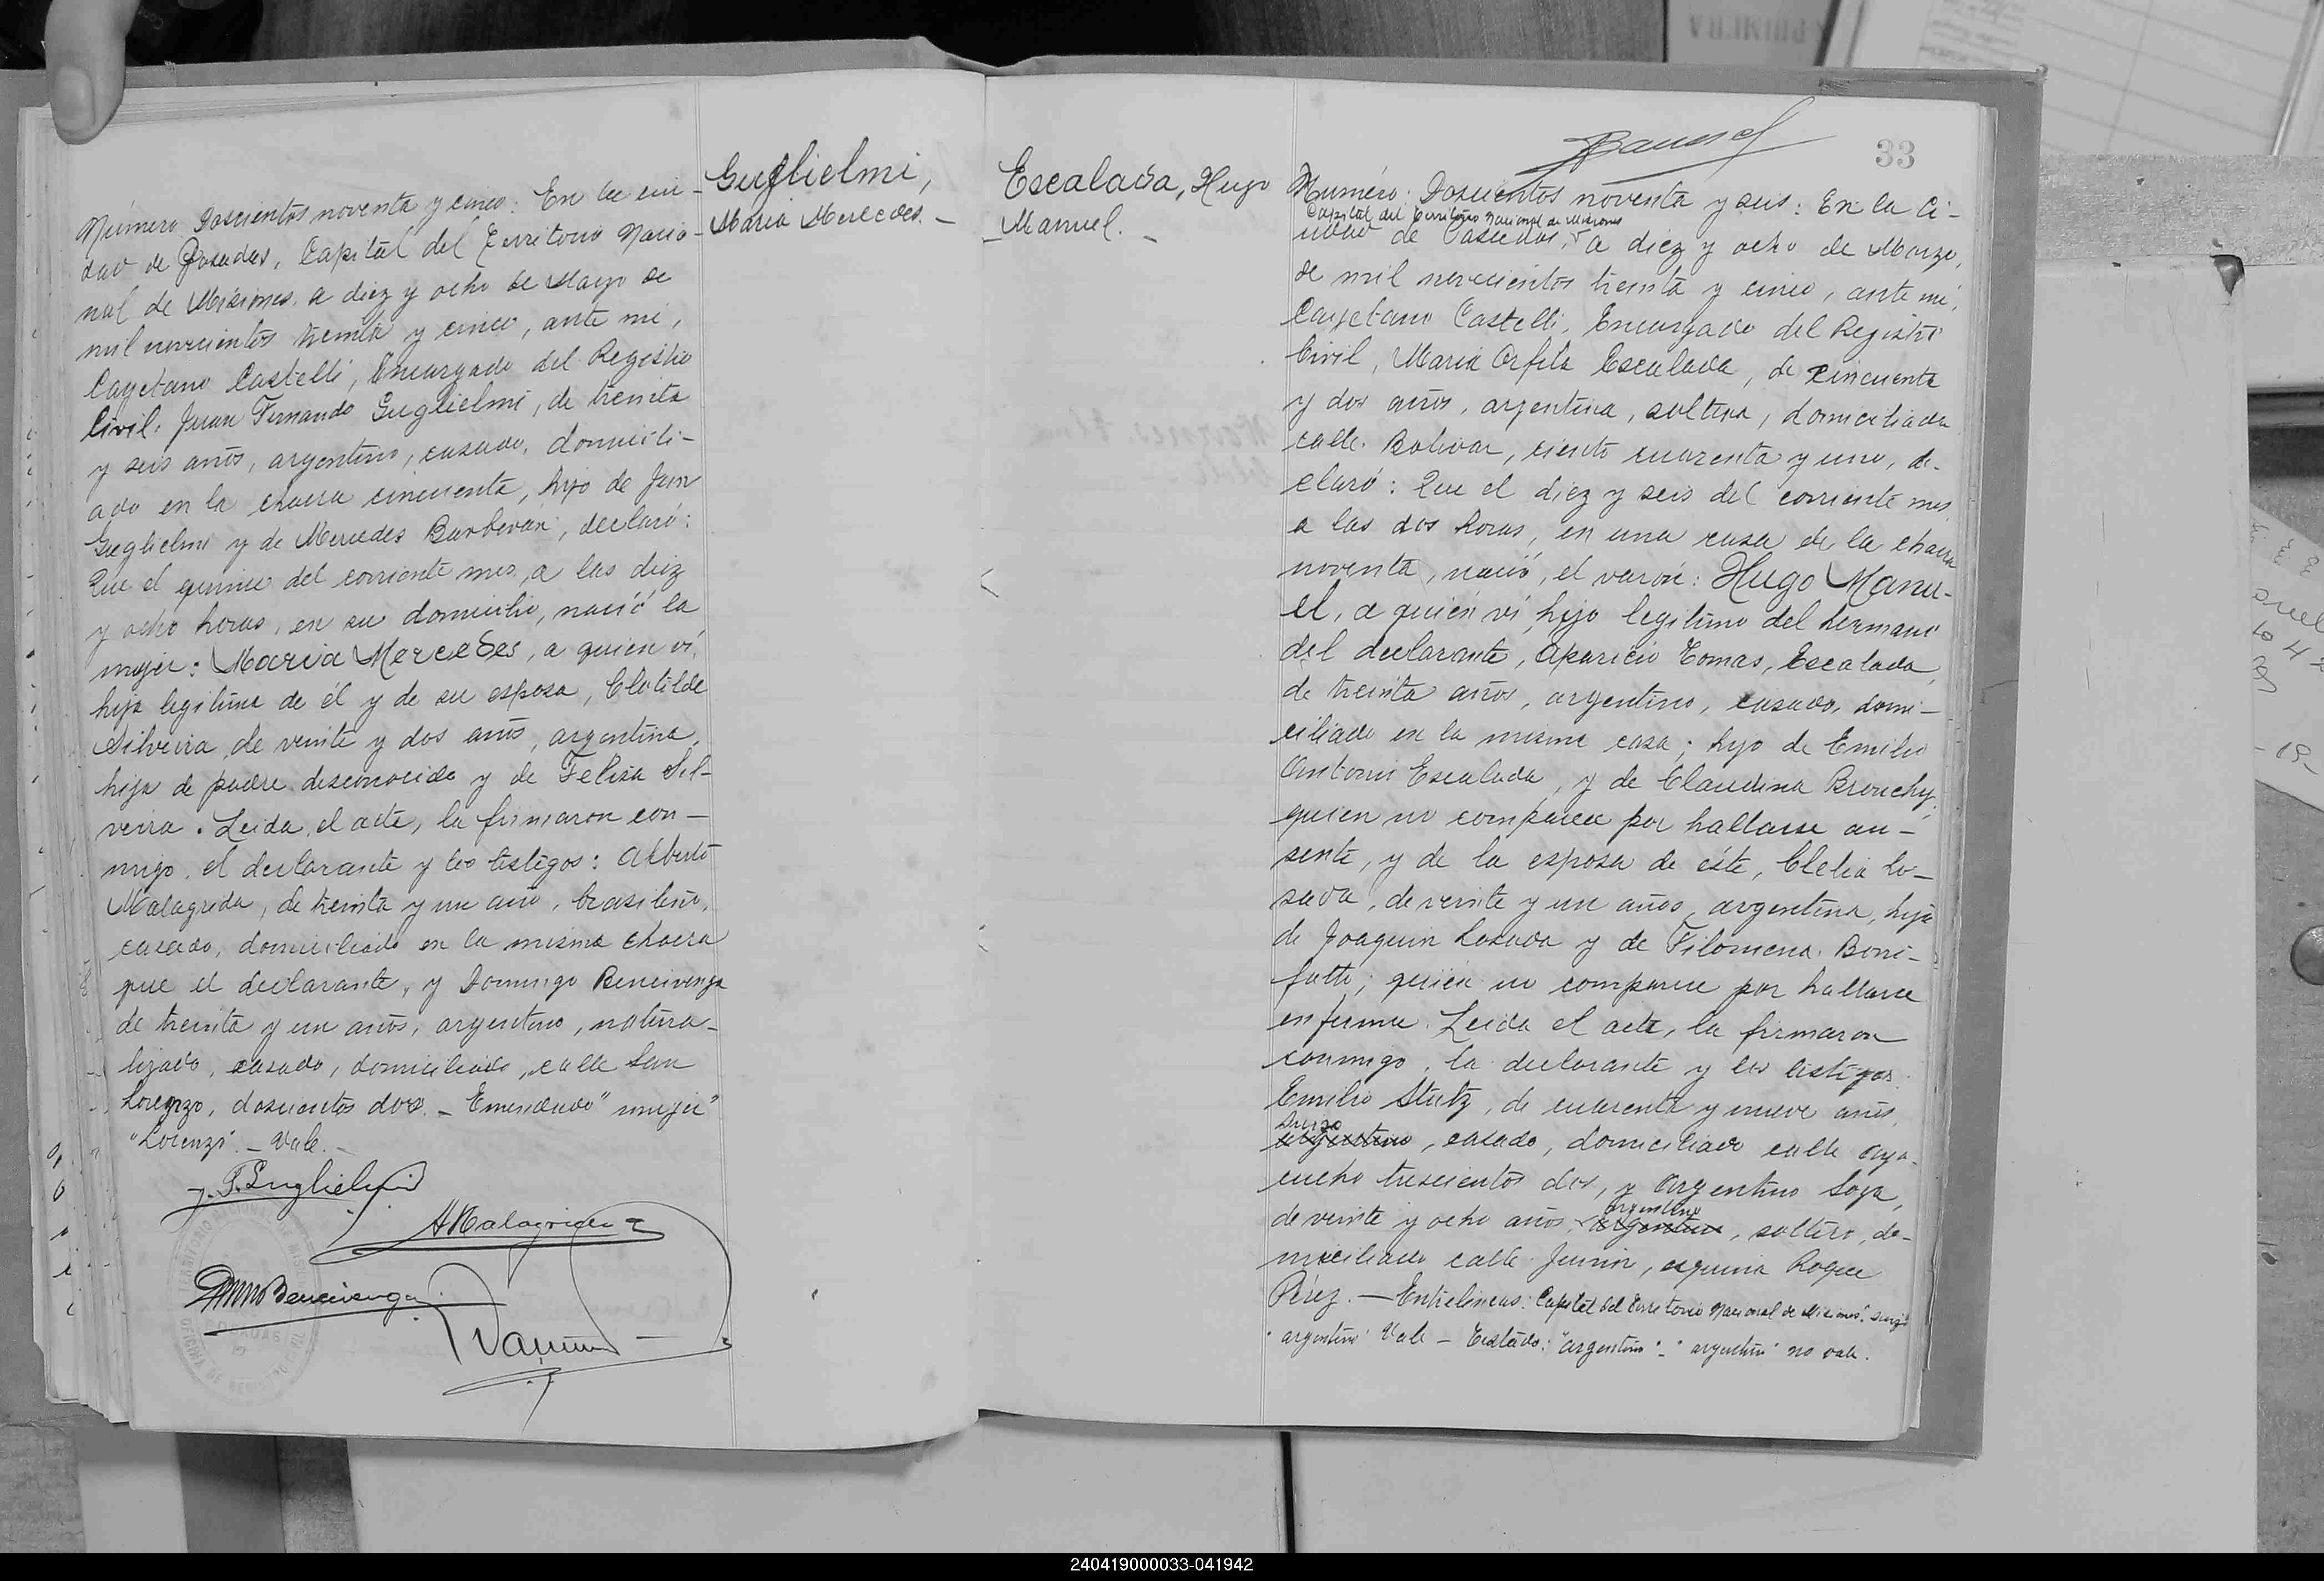 Guglielmi,
María Mercedes. —
Número Doscientos noventa y cinco: En la ciu-
dad de Posadas, Capital del Territorio Nacio-
nal de Misiones, a diez y ocho de Mayo de
mil novecientos treinta y cinco, ante mi,
Cayetano Castelli, Encargado del Registro
Civil, Juan Fernando Guglielmi, de treinta
y seis años, argentino, casado, domicili-
ado en la chacra cincuenta, hijo de Juan
Guglielmi y de Mercedes Barberán, declaró:
Que el quince del corriente mes, a las diez
y ocho horas, en su domicilio, nació la
mujer: María Mercedes, a quien ví,
hija legítima de él y de su esposa, Clotilde
Silveira, de veinte y dos años, argentina,
hija de padre desconocido y de Felisa Sil-
veira. Leida el acta, la firmaron con-
migo, el declarante y los testigos: Alberto
Malagrida, de treinta y un año, brasileño,
casado, domiciliado en la misma chacra
que el declarante, y Domingo Bencivenga
de treinta y un años, argentino, natura-
lizado, casado, domiciliado, calle San
Lorenzo, doscientos dos. — Emendado "mujer"
"Lorenzo". — Vale. —
J. F. Guglielmi
A Malagrida
Bencivenga
33
Escalada, Hugo
Manuel. —
Número: Doscientos noventa y seis: En la Ci-
Capital del Territorio Nacional de Misiones
udad de Posadas, a diez y ocho de Marzo,
de mil novecientos treinta y cinco, ante mí,
Cayetano Castelli, Encargado del Registro
Civil, María Orfila Escalada, de cincuenta
y dos años, argentina, soltera, domiciliada
calle Bolivar, ciento cuarenta y uno, de-
claró: Que el diez y seis del corriente mes
a las dos horas, en una casa de la chacra
noventa, nació, el varón: Hugo Manu-
el, a quién ví, hijo legítimo del hermano
del declarante, Aparicio Tomas, Escalada,
de treinta años, argentino, casado, domi-
ciliado en la misma casa; hijo de Emilio
Antonio Escalada, y de Claudina Brouchy,
quien no comparece por hallarse au-
sente, y de la esposa de éste, Clelia Lo-
sada, de veinte y un años, argentina, hija
de Joaquin Losada y de Filomena Boni-
fatti; quién no comparece por hallarse
enferma. Leida el acta, la firmaron
conmigo, la declarante y los testigos:
Emilio Stutz, de cuarenta y nueve años,
suizo
argentino, casado, domiciliado calle Aya-
cucho trescientos dos, y Argentino Soza,
argentino
de veinte y ocho años, argentino, soltero, do-
miciliado calle Junin, esquina Roque
Pérez. — Entrelineas: "Capital del Territorio Nacional de Misiones". suizo
"argentino" Vale — Testado: "argentino" - "argentino" no vale.
240419000033-041942